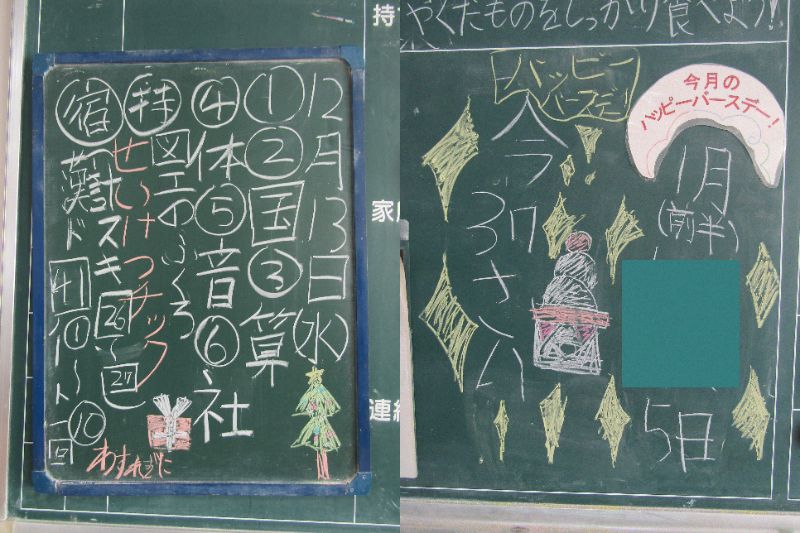 持
12月13日(水)
①②国③算
④体⑤音⑥社
持 図工のふくろ
せいけつチェック
宿 計スキ26〜27
漢ド41
わすれずに
やくだものをしっかり食べよう!
今月の
ハッピーバースデー!
1月
(前半)
5日
ハッピー
バースデー!